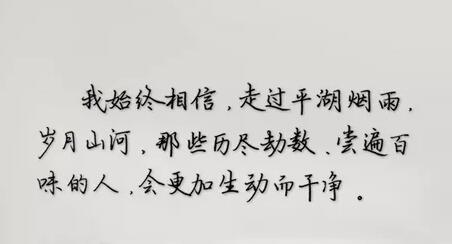 我始终相信，走过平湖烟雨，
岁月山河，那些历尽劫数、尝遍百
味的人，会更加生动而干净。